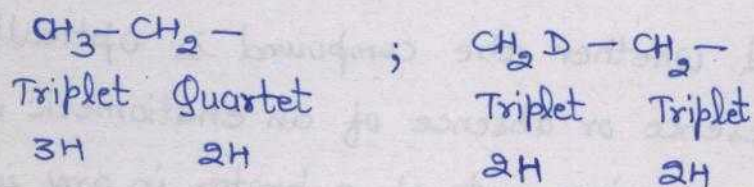 CH₃ – CH₂ – ; CH₂ D – CH₂ –
Triplet Quartet Triplet Triplet
3H 2H 2H 2H